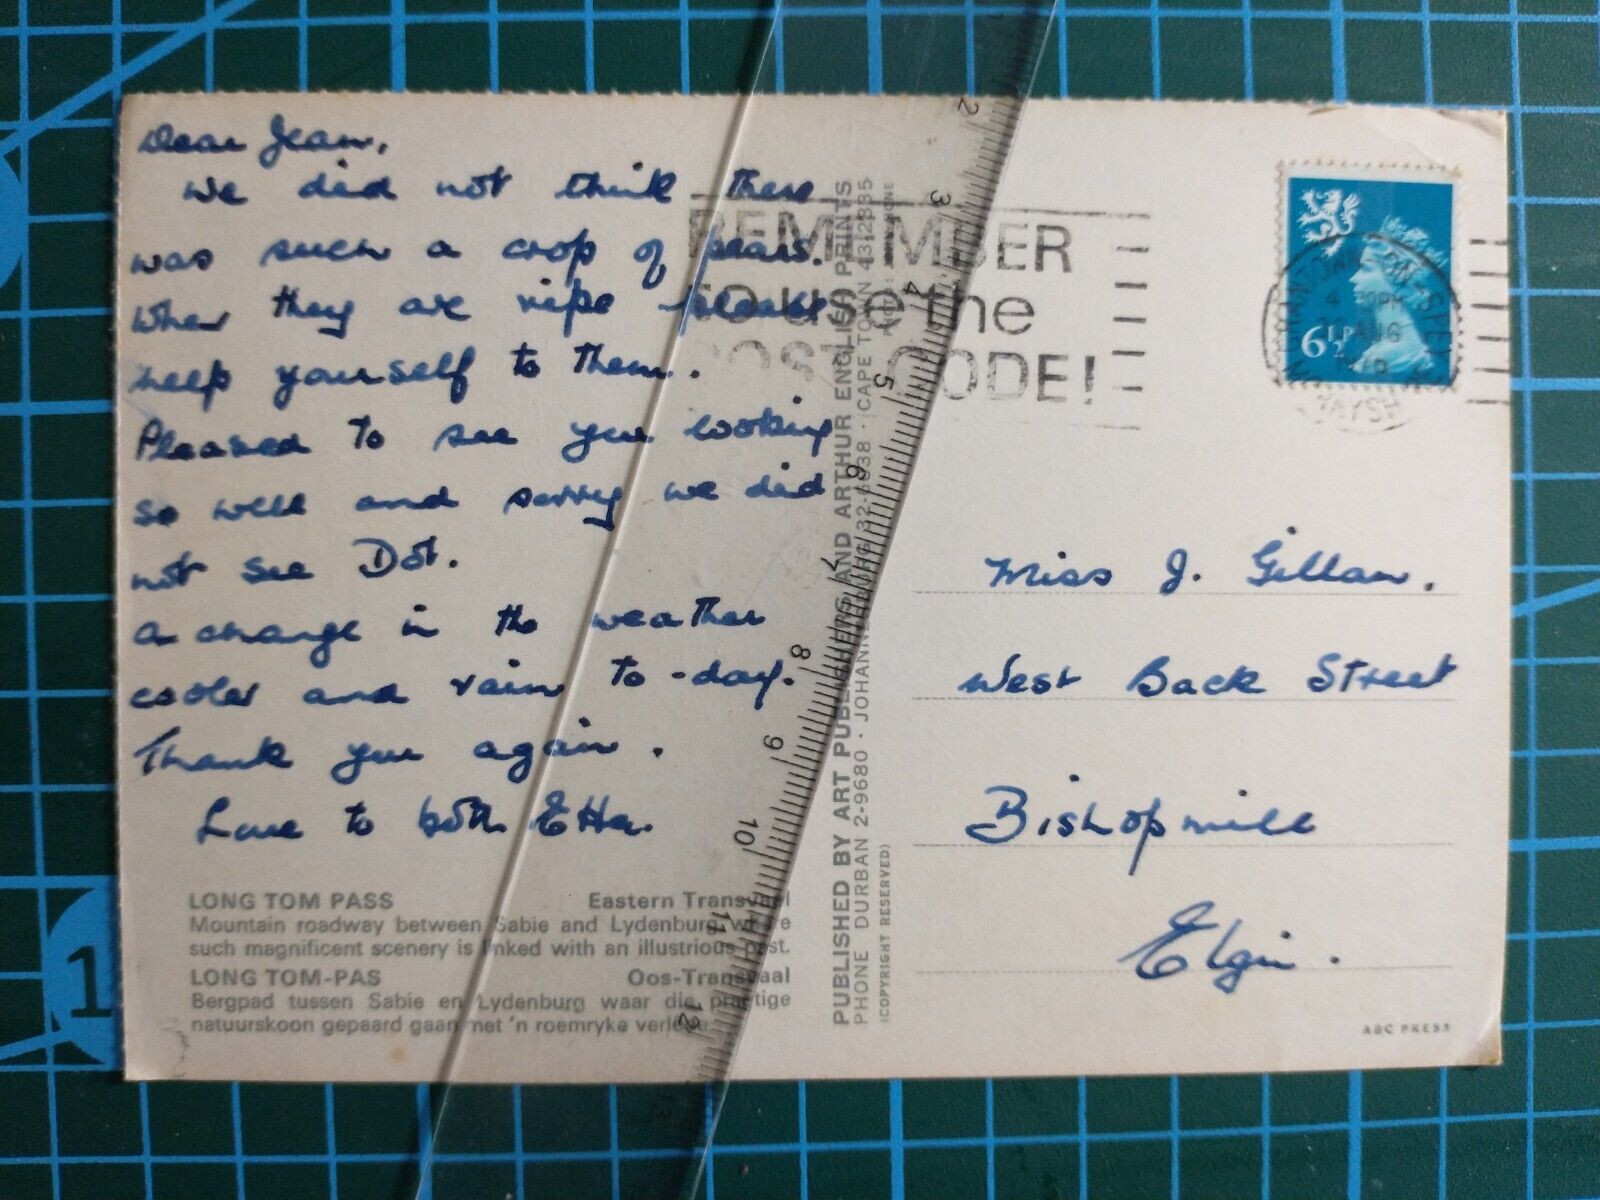 Dear Jean,
We did not think there
was such a crop of pears.
When they are ripe please
help yourself to them.
Pleased to see you looking
so well and sorry we did
not see Dot.
a change in the weather
cooler and rain to-day.
Thank you again.
Love to both Etta.
LONG TOM PASS Eastern Transvaal
Mountain roadway between Sabie and Lydenburg where
such magnificent scenery is linked with an illustrious past.
LONG TOM-PAS Oos-Transvaal
Bergpad tussen Sabie en Lydenburg waar die pragtige
natuurskoon gepaard gaan met 'n roemryke verlede.
PUBLISHED BY ART PUBLISHERS AND ARTHUR ENGLISH PRINTS
PHONE DURBAN 2-9680 · JOHANNESBURG 32-6938 · CAPE TOWN 43-2835
(COPYRIGHT RESERVED)
REMEMBER
to use the
POST CODE!
6½P
AUG
Miss J. Gillan.
West Back Street
Bishopmill
Elgin.
ABC PRESS
2
3
4
5
6
7
8
9
10
11
12
1